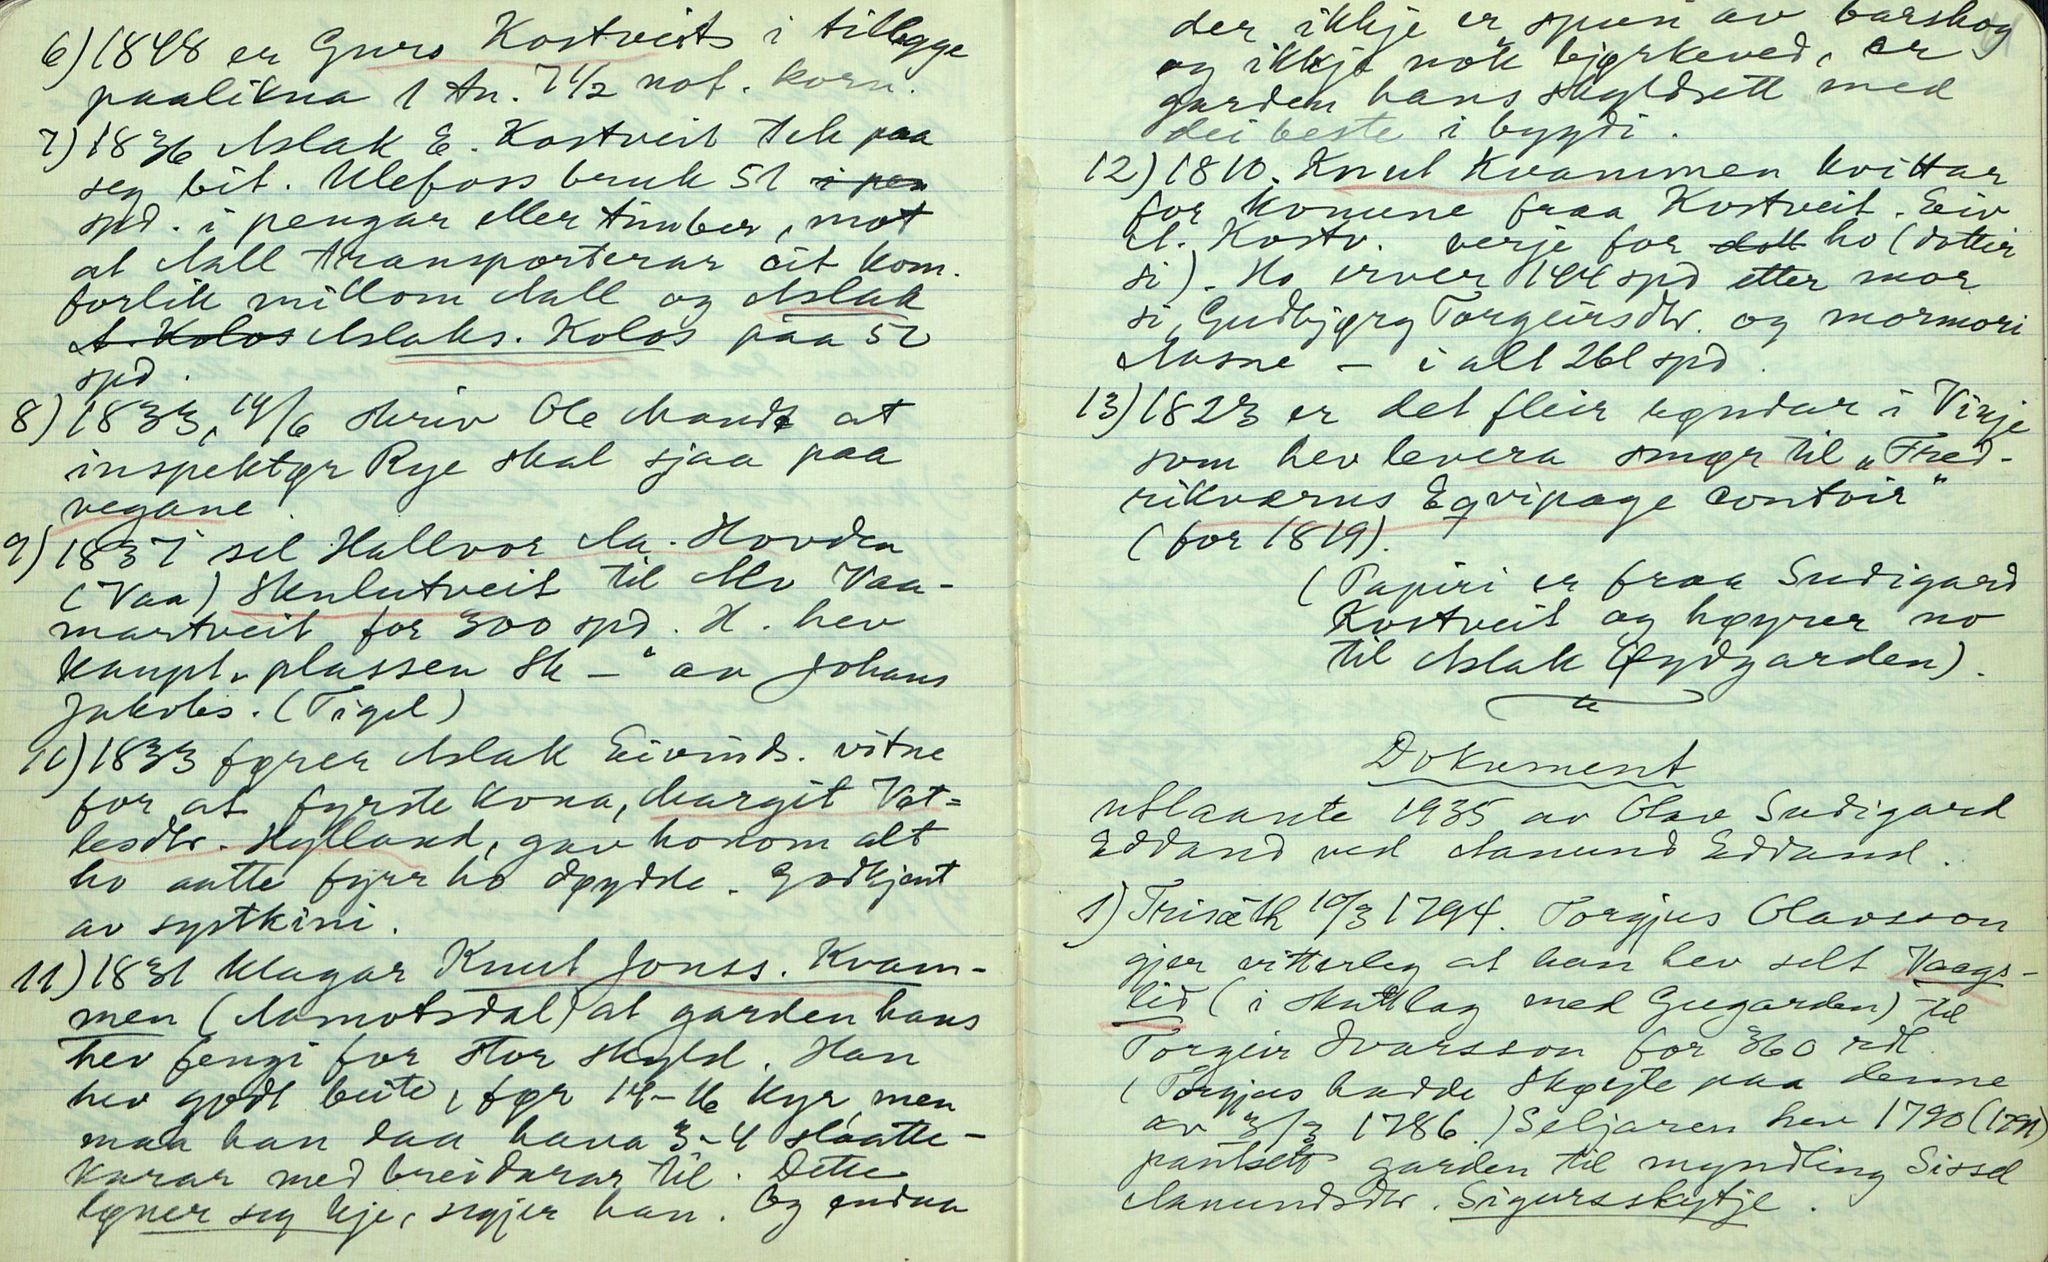 6) 1848 er Guro Kostveits i tillegge
paalikna 1 tn. 7 1/2 kot. korn.
7) 1836 Aslak E. Kostveit tek paa
seg bit. Ulefoss bruk 52 i pen
spd. i pengar eller timber, mot
at Aall transporterar eit kom.
forlik millom Aall og Aslak
A. Kolos Aslaks. Kolos paa 52
spd.
8) 1833, 14/6 skriv Ole Mandt at
inspektør Rye skal sjaa paa
vegane.
9) 1837 sel Hallvor Aa. Hovden
(Vaa) Skulutveit til Alv Vaa-
martveit for 300 spd. H. hev
kaupt „plassen Sk–“ av Johans
Jakobs. (Tigel)
10) 1833 fører Aslak Eivinds. vitne
for at fyrste kona, Margit Vet-
lesdtr. Hylland, gav honom alt
ho aatte fyrr ho døydde. Godkjent
av syskini.
11) 1831 klagar Knut Jonss. Kvam-
men (Aamotsdal) at garden hans
hev fengi for stor skyld. Han
hev godt beite, før 14–16 kyr, men
maa han daa hava 3–4 slaatte-
karar med breidarar til. Dette
løner seg kje, segjer han. Og endaa
der ikkje er spun av barskog
og ikkje nok bjørkeved, er
garden hans skyldsett med
dei beste i bygdi.
12) 1810. Knut Kvammen kvittar
for konune fraa Kostveit. Eiv
A. Kostv. verje for dott ho (dotter
si). Ho erver 144 spd etter mor
si, Gudbjørg Torgeirsdtr. og mormori
Aasne – i alt 261 spd.
13) 1823 er det fleir bøndar i Vinje
som hev levera smør til „Fred-
rikværns Eqvipage contoir“
(for 1819).
(Papiri er fraa Sudigard
Kostveit og høyrer no
til Aslak (Øydgarden).
Dokument
utlaante 1935 av Olav Sudigard
Edland ved Aanund Edland.
1) Trisæth 10/3 1794. Torgjus Olavsson
gjer vitterleg at han hev selt Vaags-
lid (i skattlag med Gugarden) til
Torgeir Ivarsson for 360 rdl.
(Torgjus hadde skøyte paa denne
av 3/3 1786.) Seljaren hev 1790 (1791)
pantsett garden til myndling Sissel
Aanundsdtr. Sigursskytje.